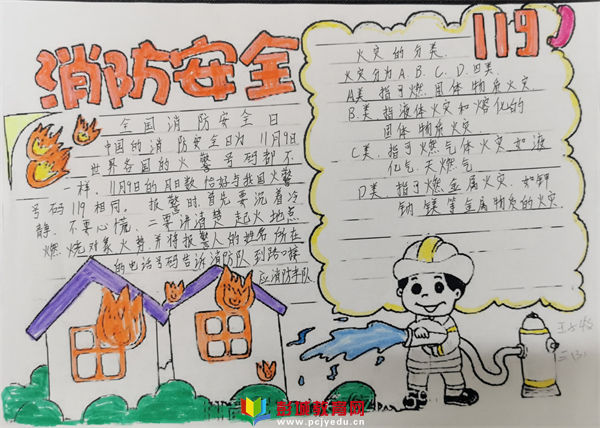 消防安全
119
全国消防安全日
中国的消防安全日为11月9日
世界各国的火警号码都不
一样，11月9日的月日数恰好与我国火警
号码119相同，报警时，首先要沉着冷
静，不要心慌，二要讲清楚起火地点
燃烧对象火势并将报警人的姓名所在
的电话号码告诉消防队到路口接
应消防车队
火灾的分类
火灾分为A、B、C、D四类
A类指可燃固体物质火灾
B类指液体火灾和熔化的
固体物质火灾
C类指可燃气体火灾如液
化气、天燃气
D类指可燃金属火灾如钾
钠镁等金属物质的火灾
彭城教育网
www.pcjyedu.cn